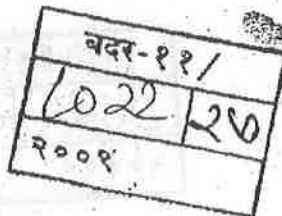 बदर-११/
1022 20
२००९